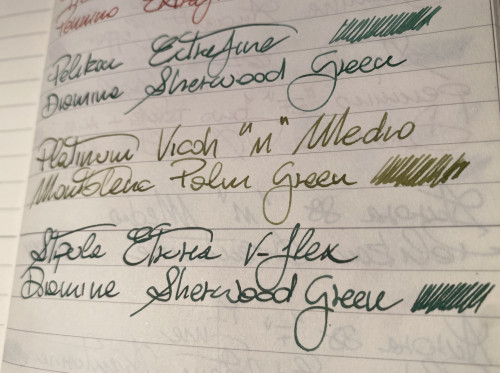 Pelikan Extrafine
Diamine Sherwood Green
Platinum Vicoh "M" Medio
Montblanc Palm Green
Stipula Etruria V-flex
Diamine Sherwood Green